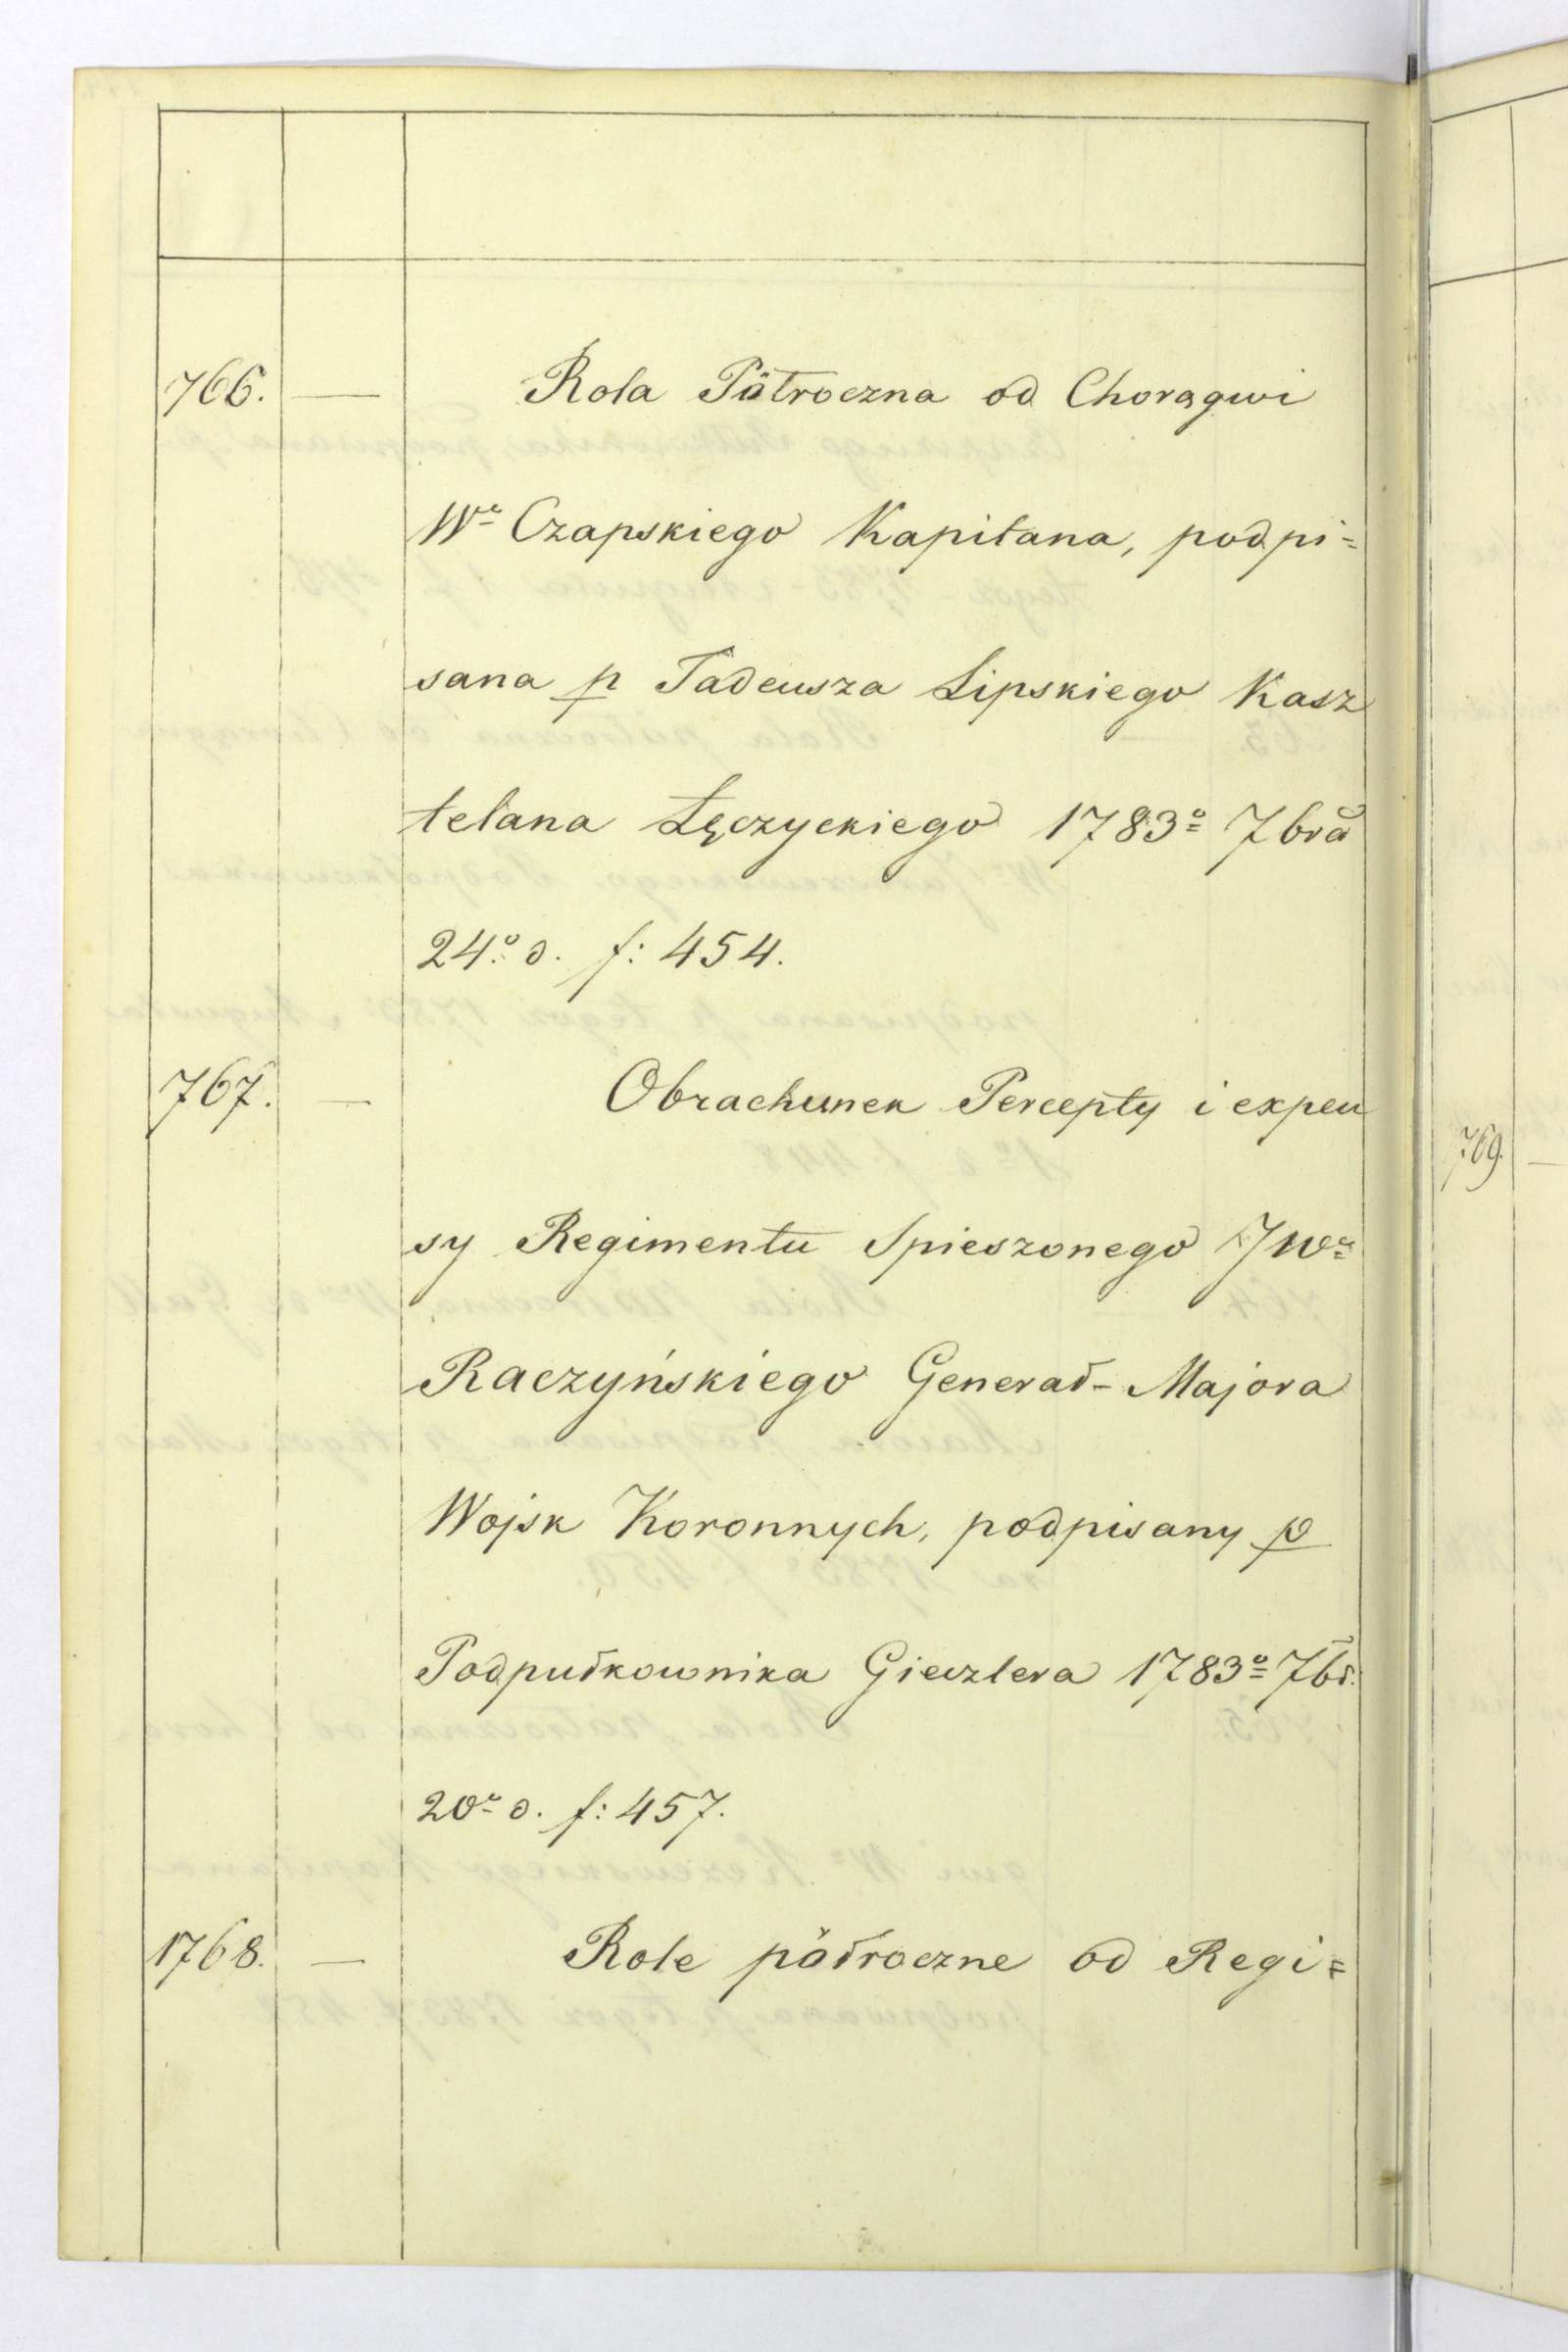 766. — Rola Pötroczna od Chorągwi
Wo Czapskiego Kapitana, podpi=
sana p Tadeusza Lipskiego Kasz
telana Łęczyckiego 1783o 7bra
24o d. f: 454.
767. — Obrachunek Percepty i expen
sy Regimentu Spieszonego JWo
Raczyńskiego Generał-Majora
Wojsk Koronnych, podpisany p
Podpułkownika Gieszlera 1783o 7br.
20o d. f: 457.
1768. — Role półroczne od Regi=
769. —